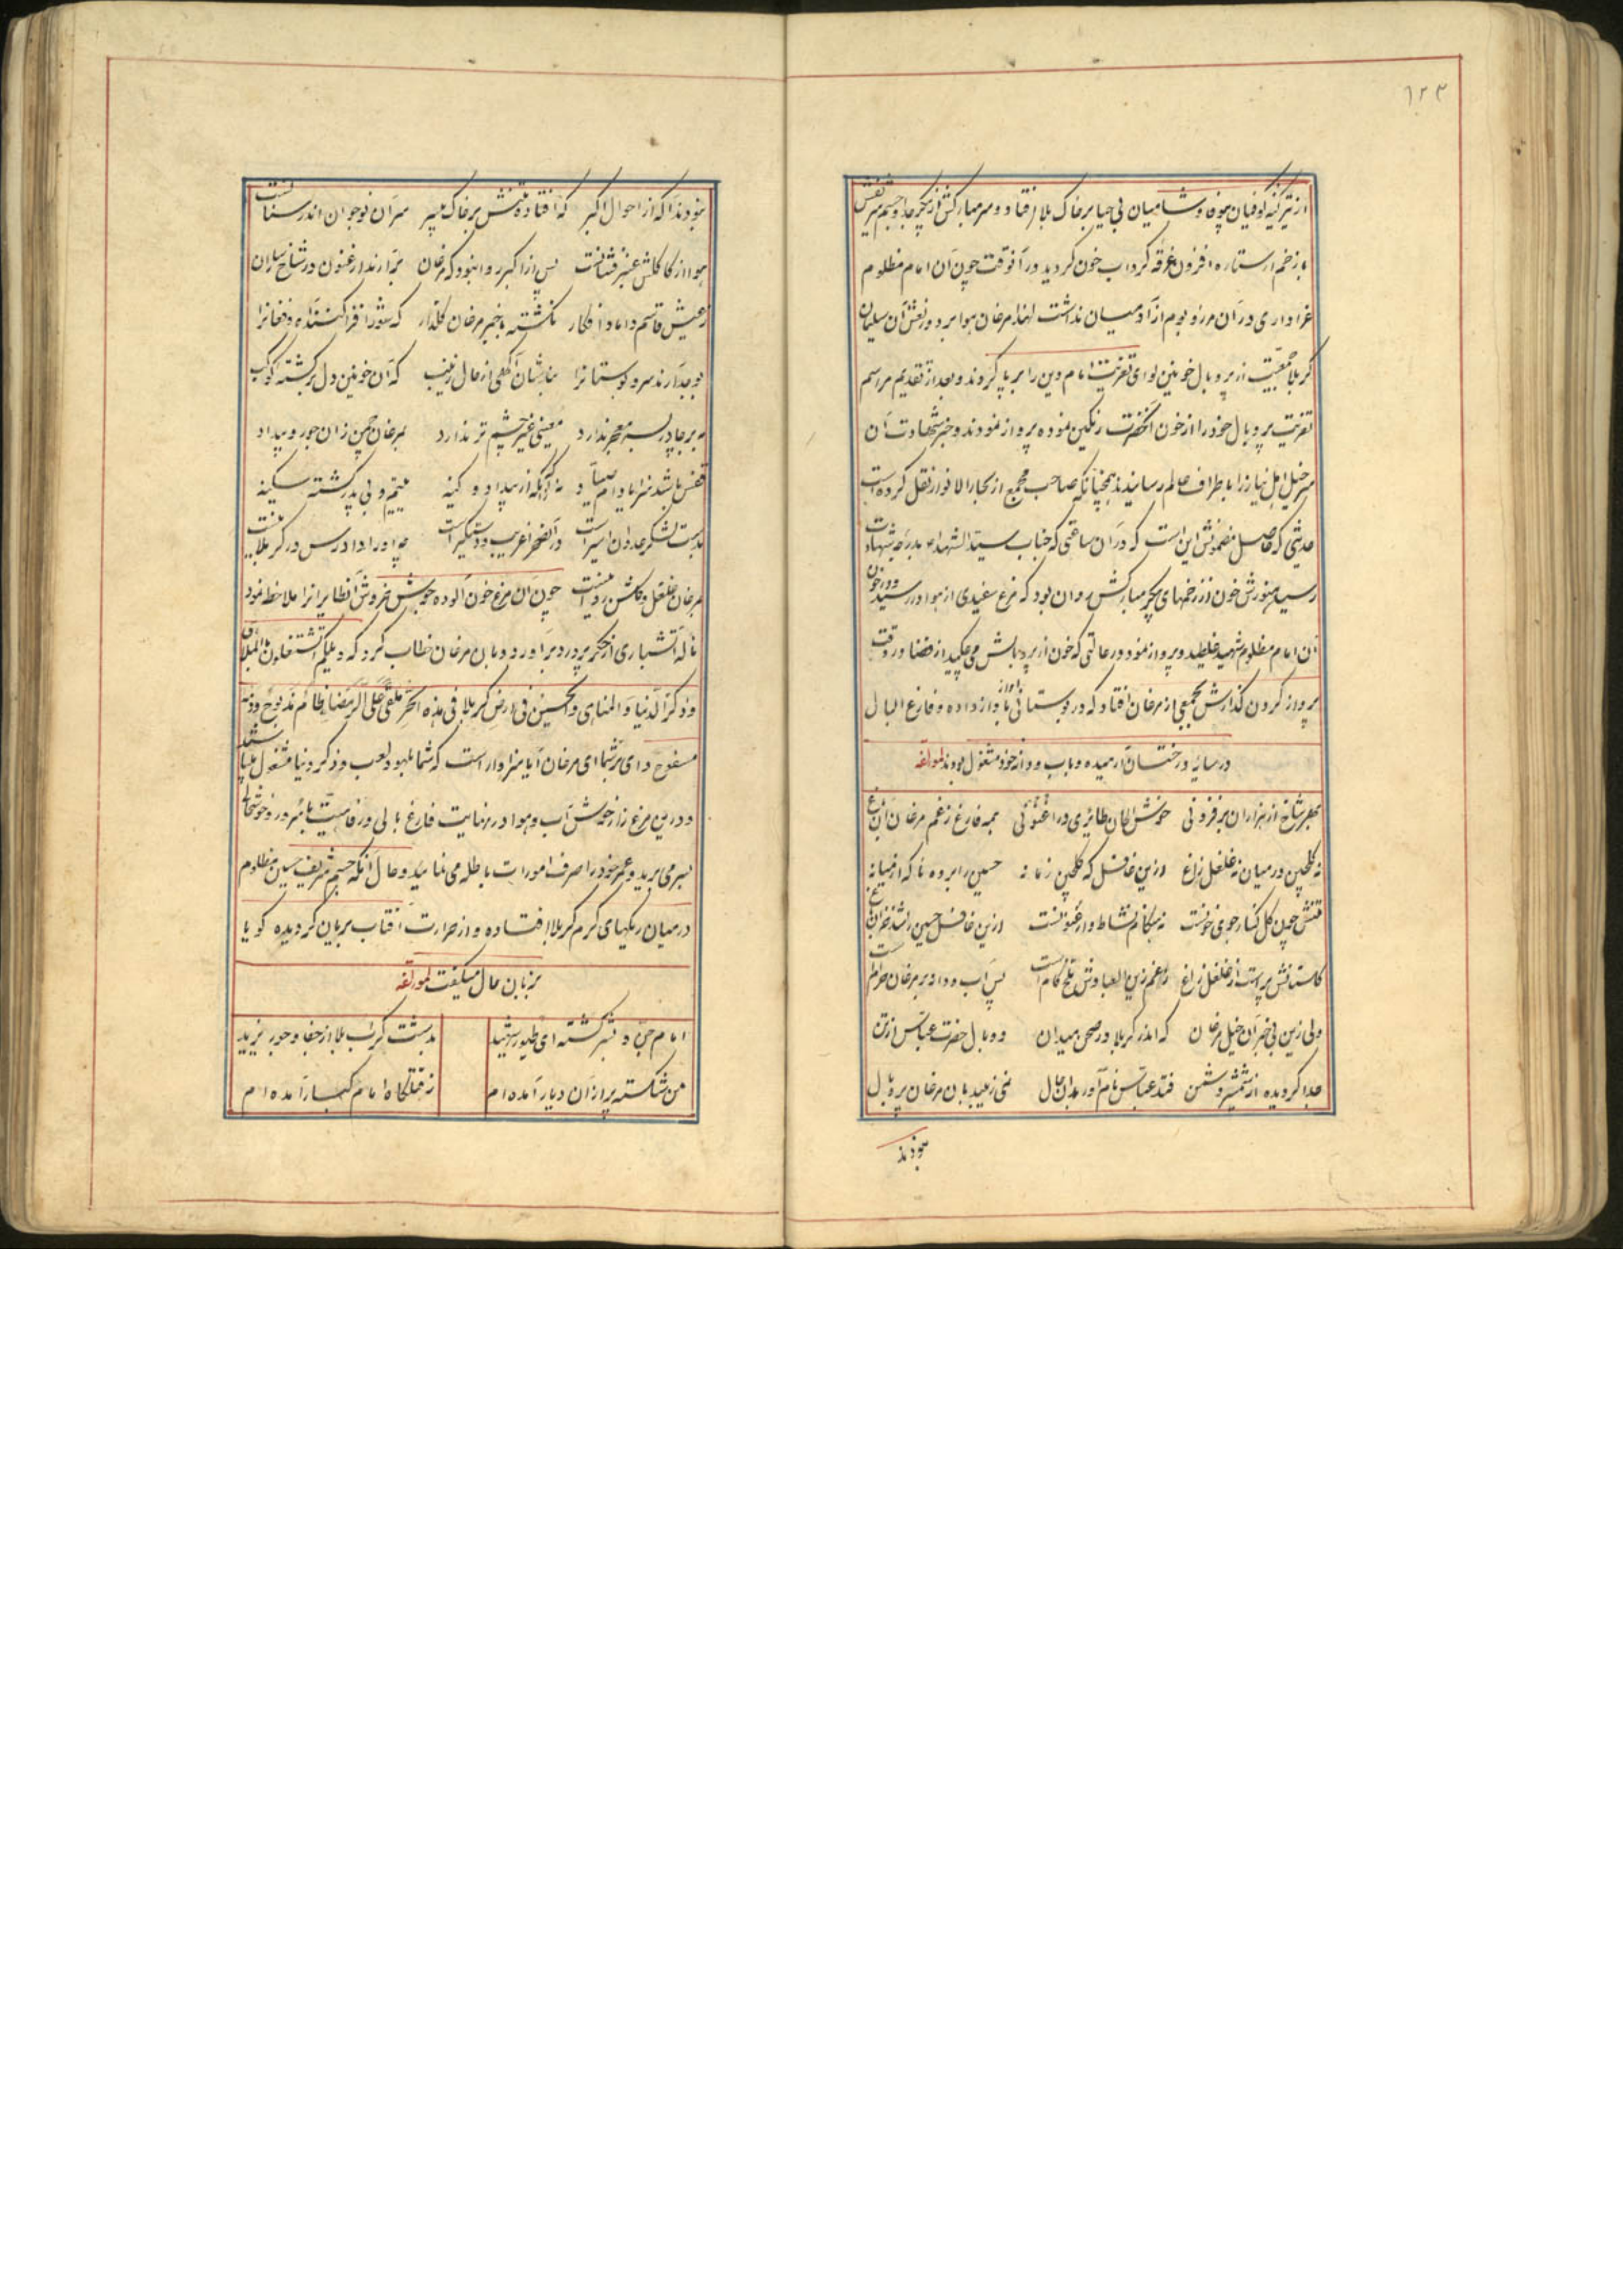 ۱۲۳
از تیر کینه کوفیان بیوفا و شامیان بی حیا بر خاک بلا افتاد و سر مبارکش از پیکر جدا و جسم شریفش
با زخم از ستاره افزون غرقه گرداب خون گردید در آنوقت چون آن امام مظلوم
عزاداری در آن مرز و بوم از آدمیان نداشت لهذا مرغان هوا بر دور نعش آن سلیمان
کربلا از پر و بال خونین لوای تعزیت امام دین را بر پا کردند و بعد از تقدیم مراسم
تعزیت پر و بال خود را از خون آنحضرت رنگین نموده پرواز نمودند و خبر شهادت آن
سر خیل اهل نیاز را باطراف عالم رسانیدند همچنانکه صاحب مجمع از بحار الانوار نقل کرده است
حدیثی که حاصل مضمونش این است که در آن ساعتی که جناب سید الشهداء بدرجه شهادت
رسید هنوزش خون از زخمهای پیکر مبارکش روان بود که مرغ سفیدی از هوا در رسید و در خون
آن امام مظلوم شهید غلطید و پرواز نمود در حالتی که خون از پر و بالش می چکید از قضا در وقت
پرواز کردن گذارش بجمعی از مرغان افتاد که در بوستانی با آواز داده و فارغ البال
در سایه درختان آرمیده و باب و دانه خود مشغول بودند لمولفه
بهر شاخ از هزاران بر فزونی خوش الحان طائری در ارغنونی همه فارغ ز غم مرغان آن باغ
نه گلچین در میان نه غلغل زاغ ازین غافل که گلچین زمانه حسین را برده ناگه از میانه
تنش چون گل کنار جوی خونست نه هنگام نشاط و ارغنونست ازین غافل حسین را شد خزان باغ
گلستانش پر است از غلغل زاغ ز غم زین العبا دوش تلخ کام است پس آب و دانه بر مرغان حرام است
ولی زین بی خبر آن خیل مرغان که اندر کربلا در صحن میدان دو بال حضرت عباس از تن
جدا گردیده از شمشیر دشمن فتد عباس نام آور بدان حال نمی زیبد بان مرغان پر و بال
نبودند
نبودند آگه از احوال اکبر که افتاده تنش بر خاک بی سر سر آن نوجوان اندر سنانست
هوا از کاکلش عنبر فشانست پس از اکبر روا نبود که مرغان برآرند ارغنون در شاخساران
ز عیش قاسم داماد افکار نگشته با خبر مرغان گلذار که شور افرا کننده و فغانرا
بوجد آرند سرو بوستانرا نباشدشان آگهی از حال زینب که آن خونین دل برگشته کوکب
نه بر سر چادر نه معجر ندارد معینی غیر چشم تر ندارد بمرغان چمن زان جور و بیداد
قفس باشد سزا یا دام صیاد نه آگه از بیداد و کینه یتیم و بی پدر گشته سکینه
بدست لشکر عدوان اسیر است در آنصحرا غریب و دستگیر است چه او را دادرس در کربلا نیست
بمرغان غلغل و گلشن روا نیست چون آن مرغ خون آلوده جوش خروش آنطایرانرا ملاحظه نمود
ناله آتشباری از جگر پر درد برآورد و بآن مرغان خطاب کرد که ویلکم اتشتغلون بالملاهی
و ذکر الدنیا و المناهی و الحسین فی ارض کربلا فی هذه الحر ملقی علی الرمضا ظامی مذبوح و دمه
مسفوح وای بر شما ای مرغان آیا سزاوار است که شما بلهو و لعب و ذکر دنیا مشغول باشید
و درین مرغزار خوش آب و هوا در نهایت فارغ بالی و رفاهیت با سرور و خوشحالی
بسر می برید و عمر خود را صرف امورات باطله می نمائید و حال آنکه جسم شریف حسین مظلوم
در میان ریگهای گرم کربلا افتاده و از حرارت آفتاب بریان گردیده گویا
بزبان حال میگفت لمولفه
امام جن و بشر گشته ای طیور شهید بدشت کرب بلا از جفا و جور یزید
من شکسته پر از آن دیار آمده ام ز قتلگاه امام کبار آمده ام